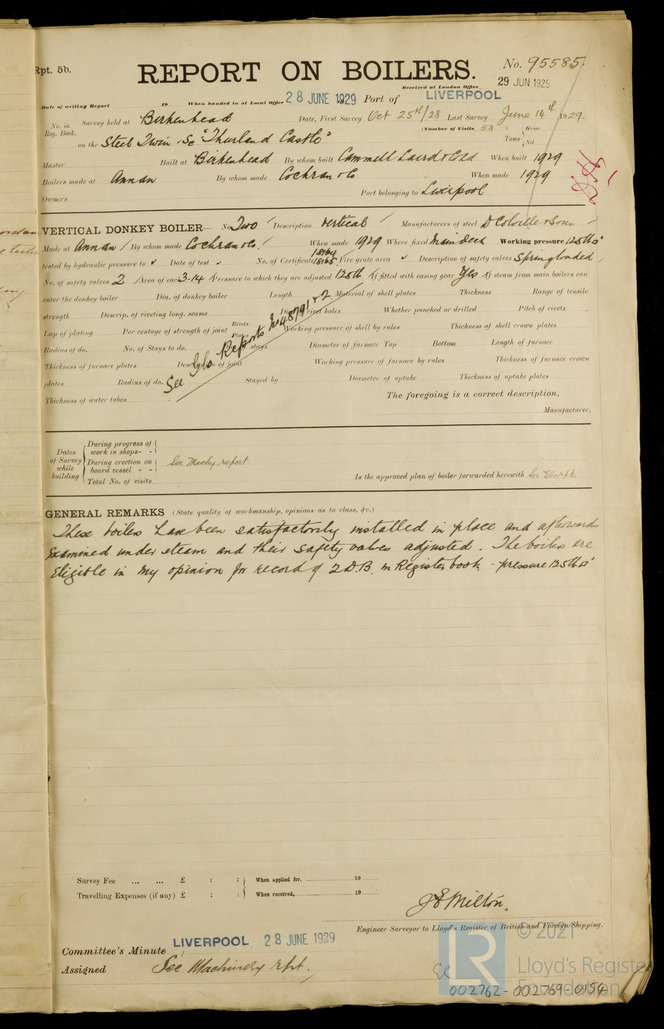 Rpt. 5b.
REPORT ON BOILERS.
No. 95585.
Received at London Office
29 JUN 1929
Date of writing Report 19 When handed in at Local Office 28 JUNE 1929 Port of LIVERPOOL
No. in Reg. Book. Survey held at Birkenhead Date, First Survey Oct 25th/28 Last Survey June 14th 1929.
(Number of Visits
on the Steel Twin Sc "Thurland Castle" Tons Gross Net
Master Built at Birkenhead By whom built Cammell Laird & Co Ld When built 1929
Boilers made at Annan By whom made Cochran & Co When made 1929
Owners Port belonging to Liverpool
VERTICAL DONKEY BOILER— No. Two Description Vertical Manufacturers of steel D Colville & Sons
Made at Annan By whom made Cochran & Co. When made 1929 Where fixed Main deck Working pressure 125 lb □"
tested by hydraulic pressure to Date of test No. of Certificate 18164 18165 Fire grate area Description of safety valves Spring loaded
No. of safety valves 2 Area of each 3.14 Pressure to which they are adjusted 125 lb If fitted with easing gear Yes If steam from main boilers can
enter the donkey boiler Dia. of donkey boiler Length Material of shell plates Thickness Range of tensile
strength Descrip. of riveting long. seams Dia. of rivet holes Whether punched or drilled Pitch of rivets
Lap of plating Per centage of strength of joint Rivets Plates Working pressure of shell by rules Thickness of shell crown plates
Radius of do. No. of Stays to do. Dia. of stays Diameter of furnace Top Bottom Length of furnace
Thickness of furnace plates Description of joint Working pressure of furnace by rules Thickness of furnace crown
plates Radius of do. Stayed by Diameter of uptake Thickness of uptake plates
Thickness of water tubes
See Gls Reports No 48791 & 2
The foregoing is a correct description.
Manufacturer.
Dates of Survey while building
During progress of work in shops - -
During erection on board vessel - - -
Total No. of visits
See Mchy report
Is the approved plan of boiler forwarded herewith
GENERAL REMARKS (State quality of workmanship, opinions as to class, &c.)
These boilers have been satisfactorily installed in place and afterwards
examined under steam and their safety valves adjusted. The boilers are
eligible in my opinion for record of 2 D.B. in Register book - pressure 125 lb □"
Survey Fee ... ... £ : : When applied for, 19
Travelling Expenses (if any) £ : : When received, 19
J E Milton.
Engineer Surveyor to Lloyd's Register of British and Foreign Shipping.
Committee's Minute LIVERPOOL 28 JUNE 1929
Assigned See Machinery rpt.
© 2021
LR
Lloyd's Register
Foundation
002762-002769-0154